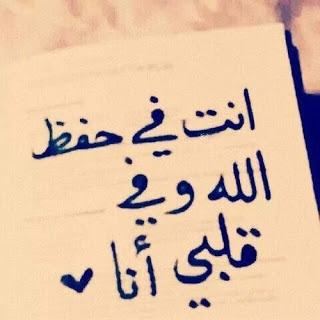 انت في حفظ
الله وفي
قلبي أنا ♥